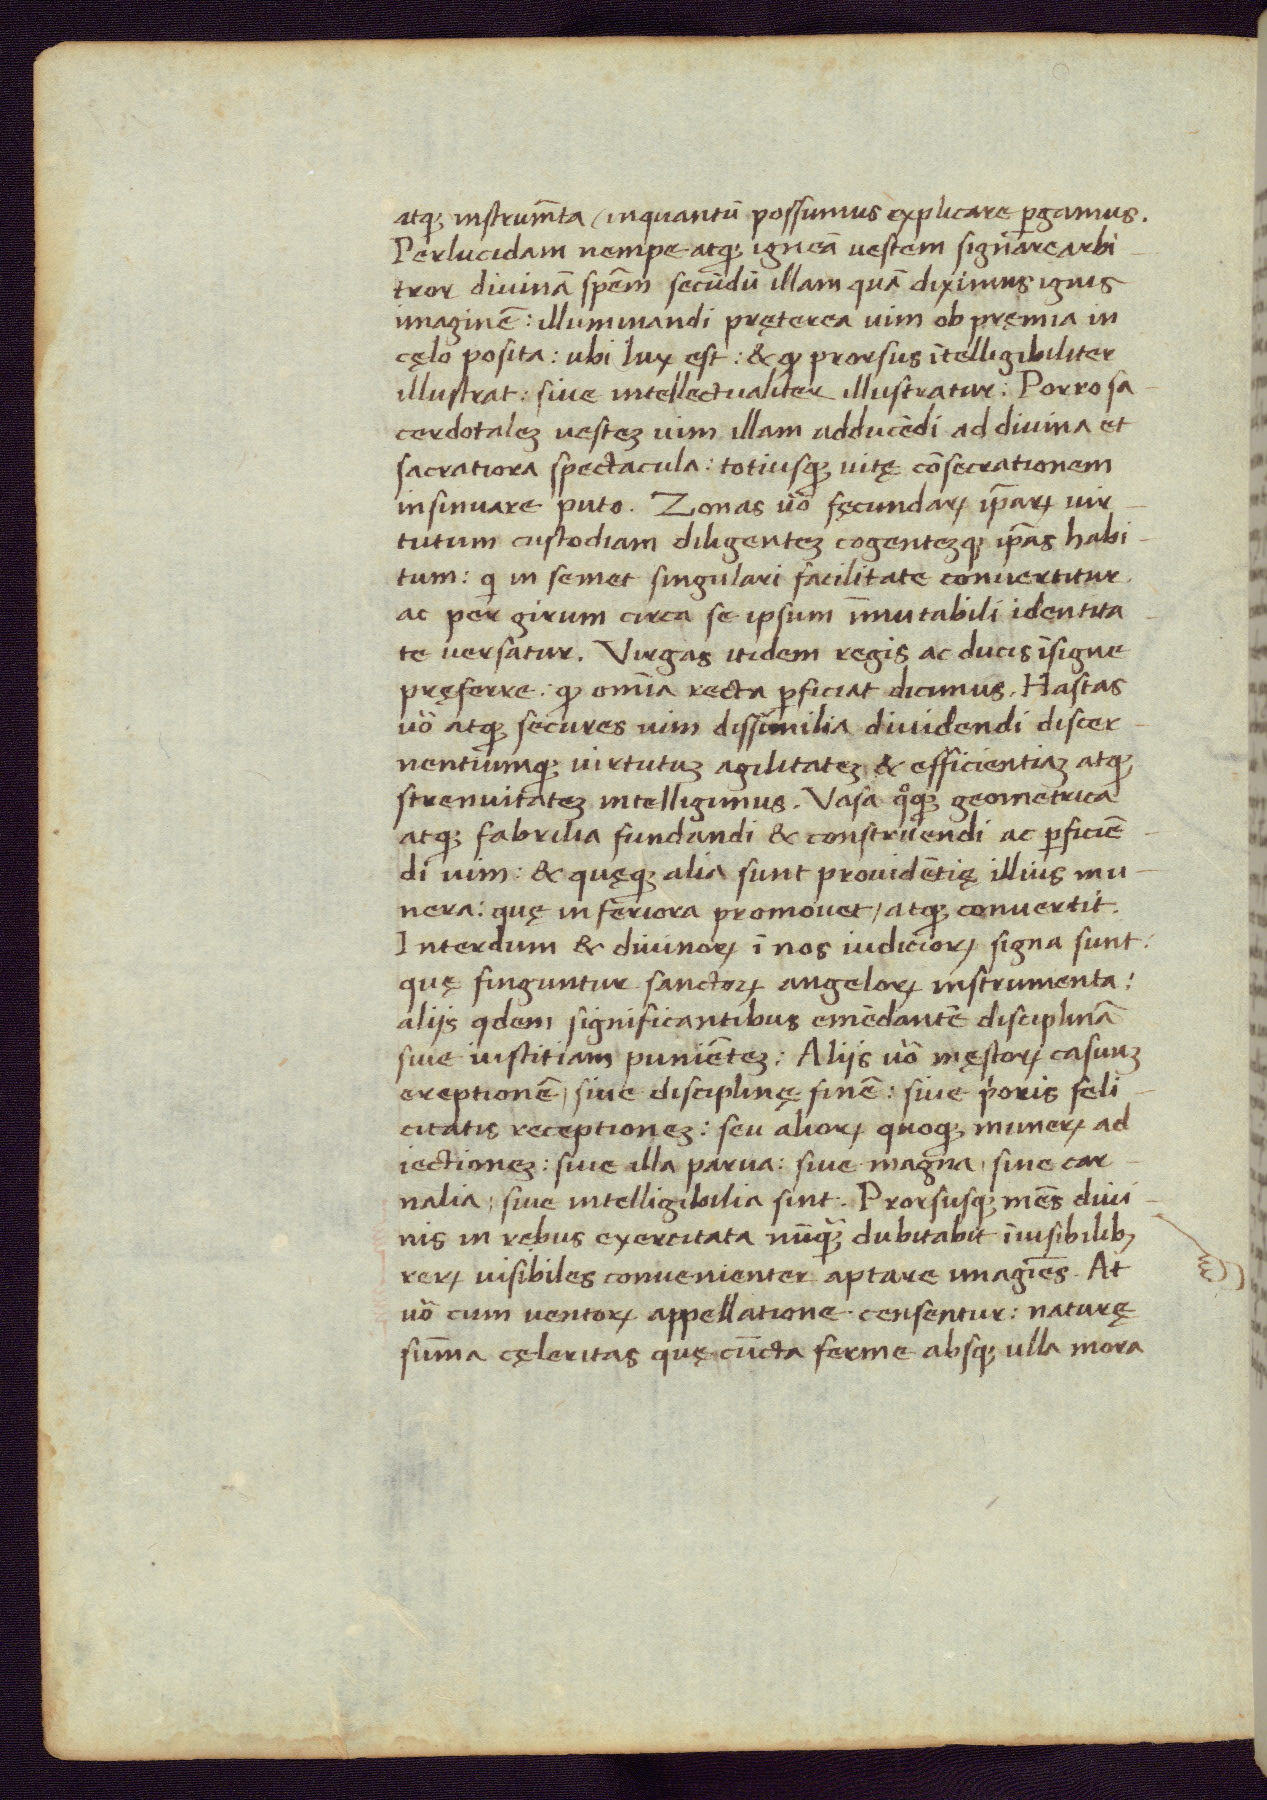 atq; instrum̄ta / inquantū possumus explicare ꝑgamus.
Perlucidam nempe atq; igneā vestem signare arbi-
tror divinā spēm secūdū illam quā diximus ignis
imaginē: illuminandi pręterea vim ob pręmia in
cęlo posita: ubi lux est: & ꝙ prorsus ītelligibiliter
illustrat: sive intellectualiter illustratur: Porro sa-
cerdotaleꝫ vesteꝫ vim illam adducēdi ad divina et
sacratiora spectacula: totiusq; vitę cōsecrationem
insinuare puto. Zonas ūo fęcundaꝝ ip̄aꝝ vir-
tutum custodiam diligenteꝫ cogenteꝫq; ip̄as habi-
tum: q in semet singulari facilitate convertitur
ac per girum circa se ipsum īmutabili identita-
te versatur. Virgas itidem regis ac ducis īsigne
pręferre: ꝙ om̄ia recta ꝑficiat dicimus. Hastas
ūo atq; secures vim dissīmilia dividendi discer-
nentiumq; virtutuꝫ agilitateꝫ & efficientiaꝫ atq;
strenuitateꝫ intelligimus. Vasa qͦq; geometrica
atq; fabrilia fundandi & construendi ac ꝑficiē-
di vim: & quęq; alia sunt providētię illius mu-
nera: quę inferiora promovet / atq; convertit.
Interdum & divinoꝝ ī nos iudicioꝝ signa sunt:
quę finguntur sanctoꝝ angeloꝝ instrumenta:
alijs qdem significantibus emēdantē disciplinā
sive iustitiam puniēteꝫ: Alijs ūo męstoꝝ casuuꝫ
ereptionē / sive disciplinę finē: sive p̄oris feli-
citatis receptioneꝫ: seu alioꝝ quoq; muneꝝ ad
iectioneꝫ: sive illa parva: sive magna, sive car-
nalia, sive intelligibilia sint. Prorsusq; mēs divi-
nis in rebus exercitata nūq̄; dubitabit īvisibilibꝫ
reꝝ visibiles convenienter aptare imagīes. At
ūo cum ventoꝝ appellatione censentur: naturę
sūma cęleritas quę cūcta ferme absq; ulla mora